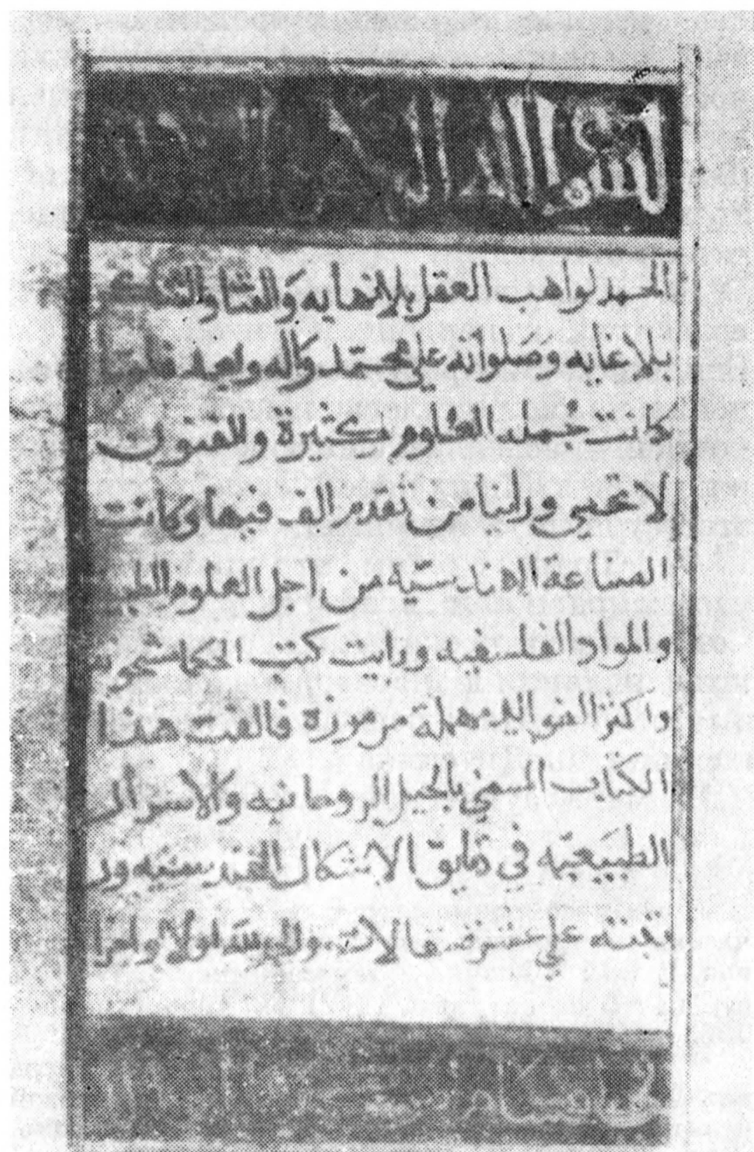 بسم الله الرحمن الرحيم
الحمد لواهب العقل بلا نهايه وَالثنا وَالشكر
بلا غايه وَصَلواته علي محمّد وَآله وبعد فلما
كانت جُملة العلوم كثيرة والفنون
لا تحصي ورأينا من تقدم الف فيها وكانت
الصناعة الهندسيّة من اجل العلوم الطب
والمواد الفلسفيه ورايت كتب الحكما مشحونه
وَاكثر الفوايد مهملة مرموزة فالفت هذا
الكتاب المسمي بالحيل الروحانيه وَالاسرار
الطبيَعيّه في دقايق الاشكال الهندسيه ور
تبته علي عشر مقالات والحمد لله اولا واخرا